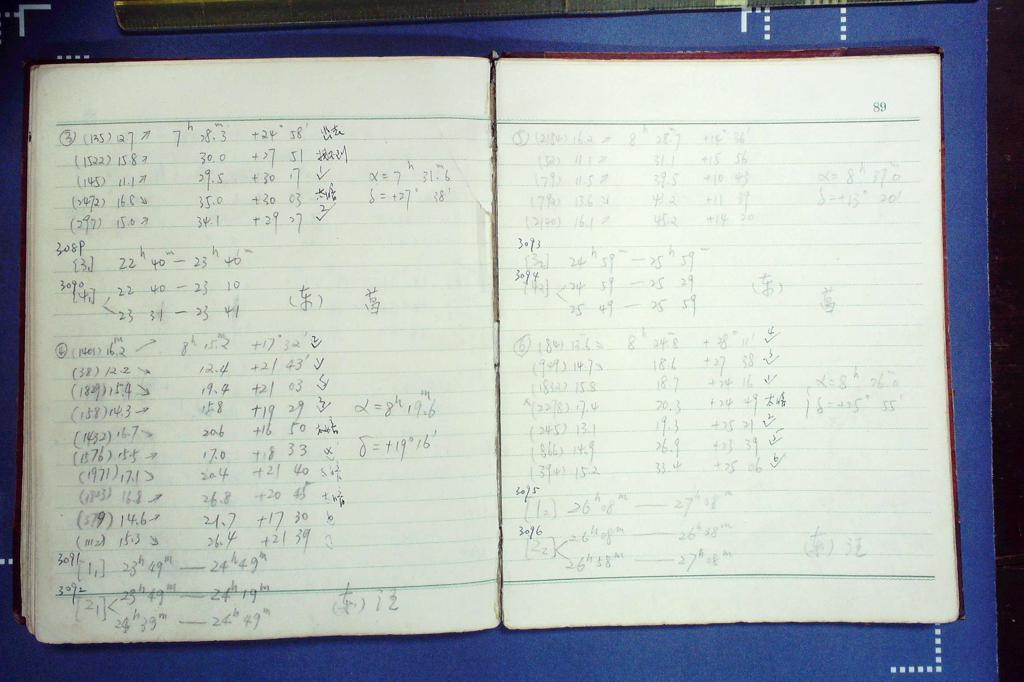 ③ (135) 12.7 ↗ 7ʰ 28.ᵐ3 +24° 58′
(1522) 15.8 30.0 +27 51 找不到
(145) 11.1 29.5 +30 17 ✓ α=7ʰ 31.ᵐ6
(2472) 16.8 35.0 +30 03 太暗 δ=+27° 38′
(297) 15.0 34.1 +29 27 ✓
3089
[3₁] 22ʰ 40ᵐ — 23ʰ 40ᵐ
3090
[4₁] 22 40 — 23 10
23 31 — 23 41 (东)
④ (1401) 16.2 8ʰ 15.ᵐ2 +17° 32′
(38) 12.2 12.4 +21 43′
(1829) 15.4 19.4 +21 03
(158) 14.3 15.8 +19 29 α=8ʰ 19.ᵐ6
(1432) 16.7 20.6 +16 50
(1576) 15.5 17.0 +18 33 δ=+19°16′
(1971) 17.1 20.4 +21 40
(1803) 16.8 26.8 +20 45 太暗
(379) 14.6 21.7 +17 30
(1112) 15.3 26.4 +21 39
3091
[1₁] 23ʰ49ᵐ — 24ʰ49ᵐ
3092
[2₁] 23ʰ49ᵐ — 24ʰ19ᵐ
24ʰ39ᵐ — 24ʰ49ᵐ (东) 注
89
⑤ (2184) 16.2 8ʰ 28.ᵐ7 +14° 36′
(52) 11.1 31.1 +15 56
(79) 11.5 39.5 +10 43 α=8ʰ 39.ᵐ0
(792) 13.6 +11 39 δ=+13° 20′
(2140) 16.1 45.2 +14 20
3093
[3₂] 24ʰ 59ᵐ — 25ʰ 59ᵐ
3094
[4₂] 24 59 — 25 29
25 49 — 25 59 (东)
⑥ (184) 13.6 8ʰ 24.ᵐ8 +28° 11′
(929) 14.7 18.6 +27 38
(1832) 15.8 18.7 +24 16 ✓ α=8ʰ 26.ᵐ0
(2278) 17.4 20.3 +24 49 太暗 δ=+25° 55′
(245) 13.1 19.3 +25 21
(866) 14.9 26.9 +23 39
(394) 15.2 33.4 +25 06
3095
[1₂] 26ʰ08ᵐ — 27ʰ08ᵐ
3096
[2₂] 26ʰ08ᵐ — 26ʰ38ᵐ
26ʰ58ᵐ — 27ʰ08ᵐ (东) 注